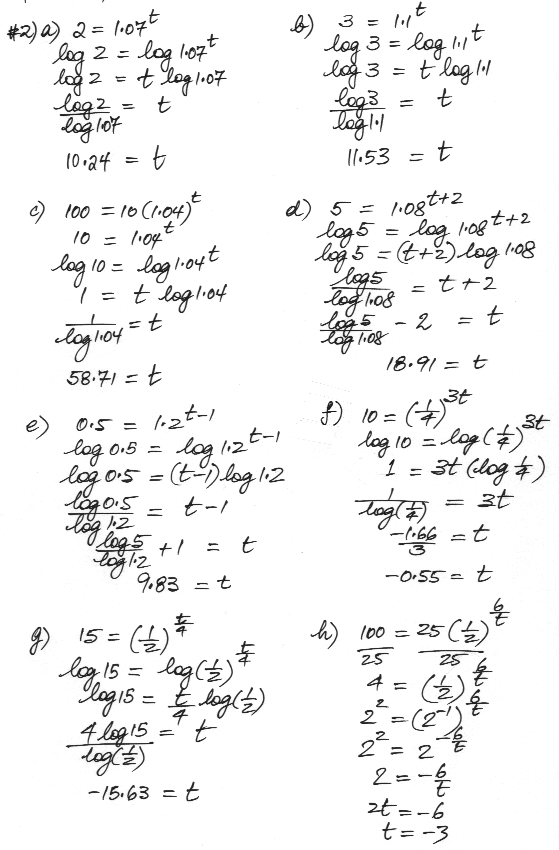 #2) a) 2 = 1.07^t
log 2 = log 1.07^t
log 2 = t log 1.07
log 2 / log 1.07 = t
10.24 = t
b) 3 = 1.1^t
log 3 = log 1.1^t
log 3 = t log 1.1
log 3 / log 1.1 = t
11.53 = t
c) 100 = 10(1.04)^t
10 = 1.04^t
log 10 = log 1.04^t
1 = t log 1.04
1 / log 1.04 = t
58.71 = t
d) 5 = 1.08^(t+2)
log 5 = log 1.08^(t+2)
log 5 = (t+2) log 1.08
log 5 / log 1.08 = t + 2
log 5 / log 1.08 - 2 = t
18.91 = t
e) 0.5 = 1.2^(t-1)
log 0.5 = log 1.2^(t-1)
log 0.5 = (t-1) log 1.2
log 0.5 / log 1.2 = t - 1
log 5 / log 1.2 + 1 = t
9.83 = t
f) 10 = (1/4)^(3t)
log 10 = log (1/4)^(3t)
1 = 3t (log 1/4)
1 / log(1/4) = 3t
-1.66 / 3 = t
-0.55 = t
g) 15 = (1/2)^(t/4)
log 15 = log (1/2)^(t/4)
log 15 = t/4 log(1/2)
4 log 15 / log(1/2) = t
-15.63 = t
h) 100 / 25 = 25 (1/2)^(6/t) / 25
4 = (1/2)^(6/t)
2^2 = (2^-1)^(6/t)
2^2 = 2^(-6/t)
2 = -6/t
2t = -6
t = -3